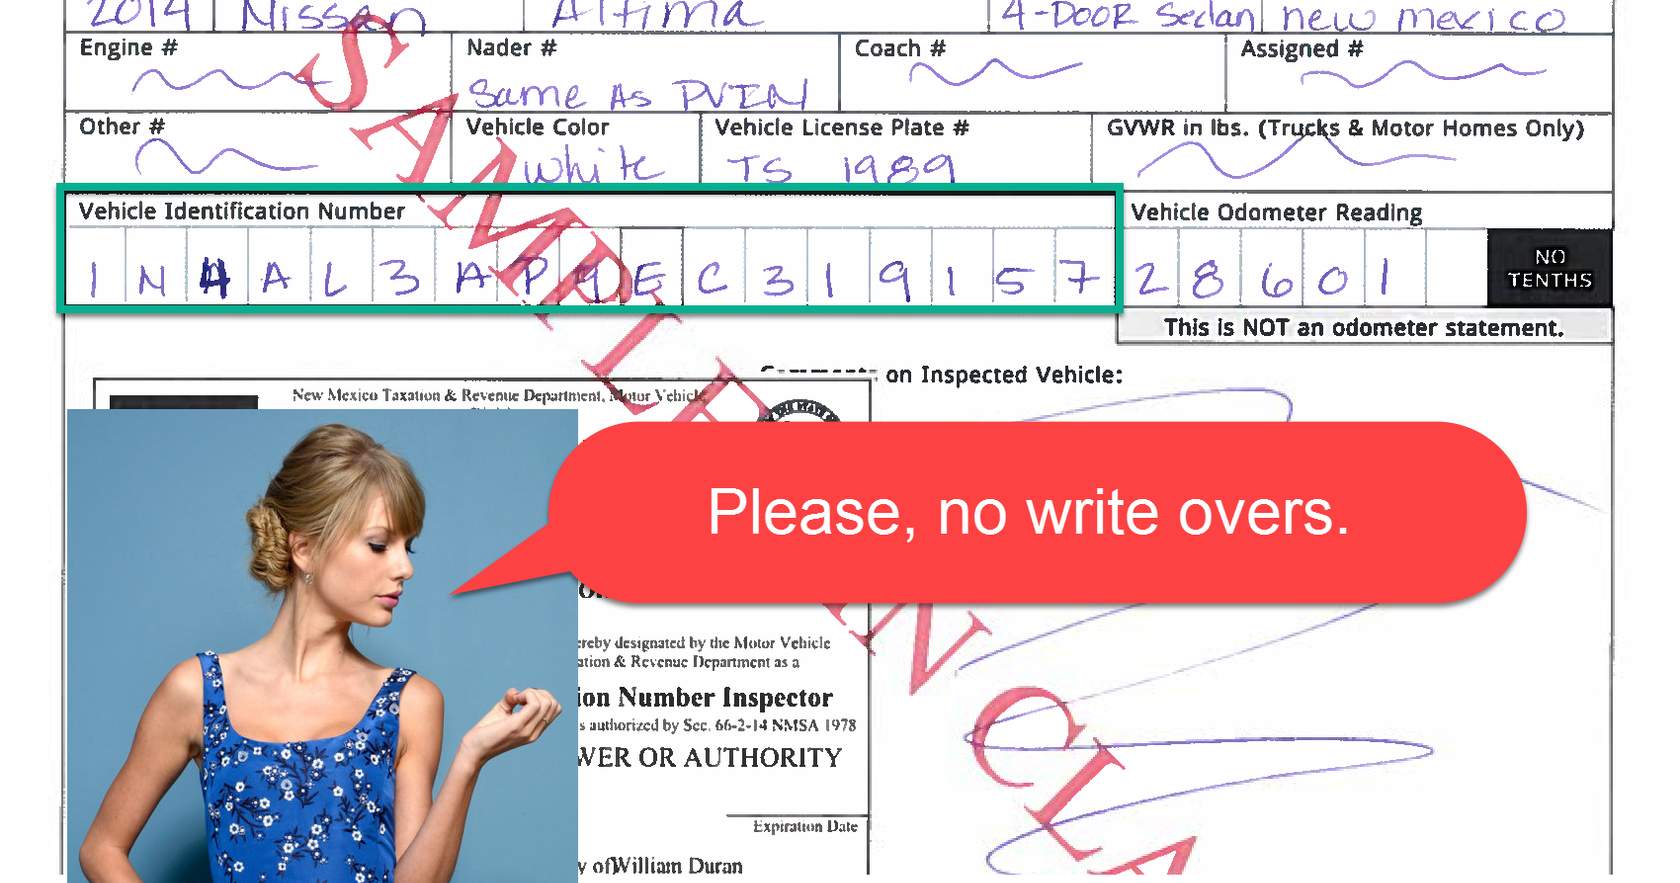 2014 Nissan Altima 4-DOOR Sedan new mexico
Engine # Nader # Coach # Assigned #
Same As PVIN
Other # Vehicle Color Vehicle License Plate # GVWR in lbs. (Trucks & Motor Homes Only)
white TS 1989
Vehicle Identification Number Vehicle Odometer Reading
1 N 4 A L 3 A P 9 E C 3 1 9 1 5 7 2 8 6 0 1 NO
TENTHS
This is NOT an odometer statement.
on Inspected Vehicle:
New Mexico Taxation & Revenue Department, Motor Vehicle
Please, no write overs.
ereby designated by the Motor Vehicle
ation & Revenue Department as a
ion Number Inspector
s authorized by Sec. 66-2-14 NMSA 1978
WER OR AUTHORITY
Expiration Date
y of William Duran
SAMPLE IN CLA